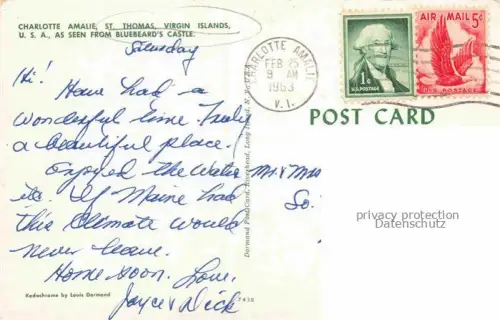 CHARLOTTE AMALIE, ST. THOMAS, VIRGIN ISLANDS,
U. S. A., AS SEEN FROM BLUEBEARD'S CASTLE.
Saturday
Hi!
Have had a
wonderful time. Truly
a beautiful place.
Enjoyed the Water
etc. If Maine had
this Climate would
never leave.
Home soon. Love,
Joyce & Dick
Kodachrome by Louis Dormand
7438
Dormand Post Card, Riverhead, Long Island, N.
CHARLOTTE AMALIE
FEB 25
9 AM
1963
V. I.
1¢
U.S. POSTAGE
AIR MAIL 5¢
U.S. POSTAGE
POST CARD
Mr & Mrs
So.
privacy protection
Datenschutz